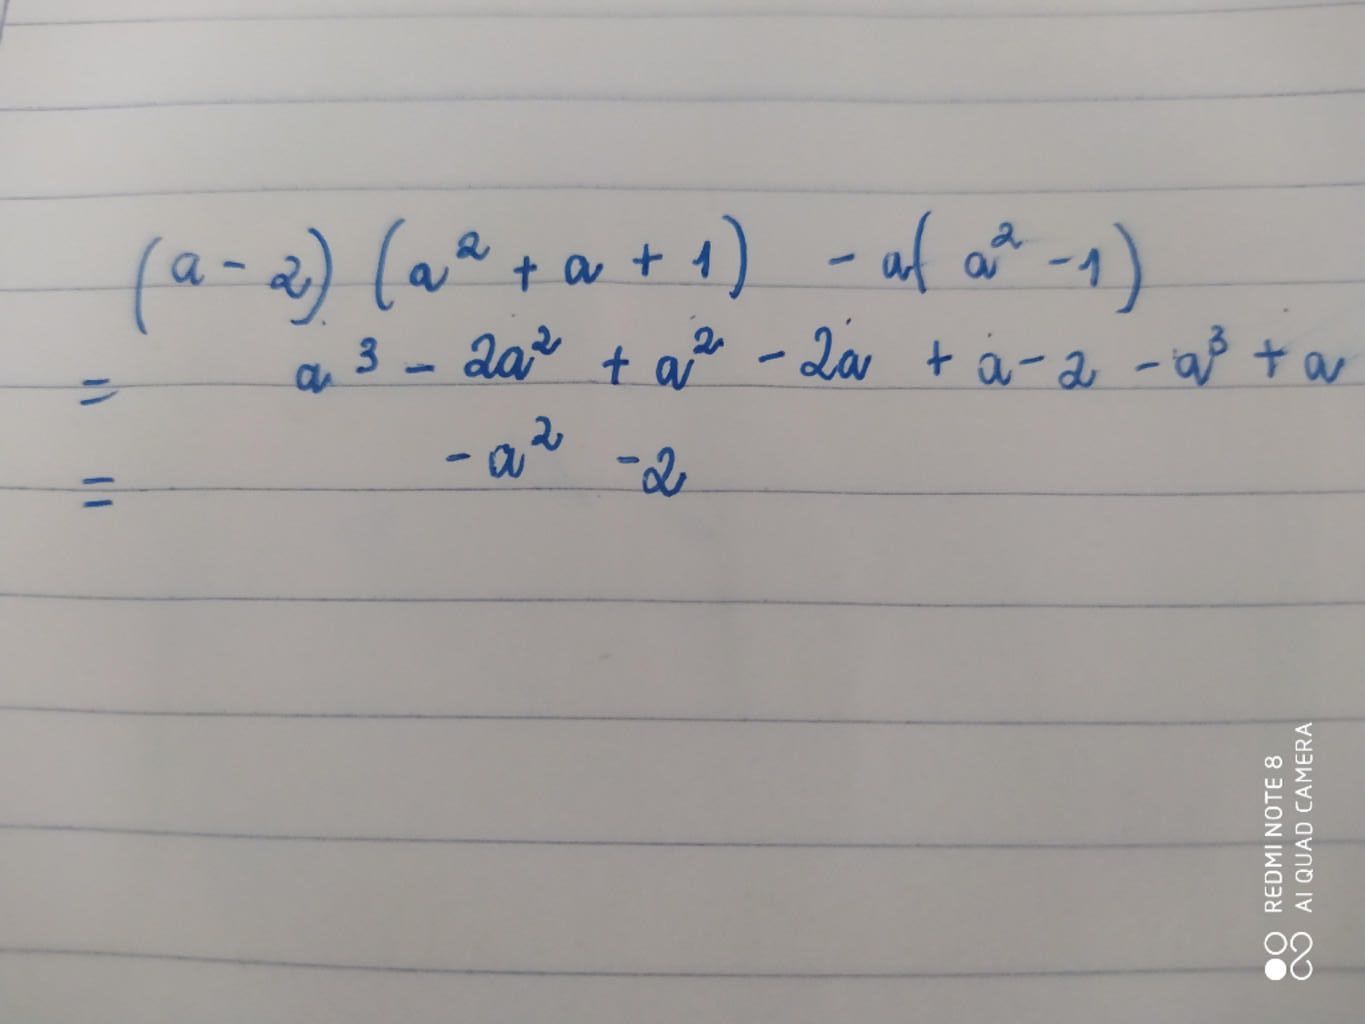 (a - 2) (a² + a + 1) - a(a² - 1)
= a³ - 2a² + a² - 2a + a - 2 - a³ + a
= -a² - 2
REDMI NOTE 8
AI QUAD CAMERA